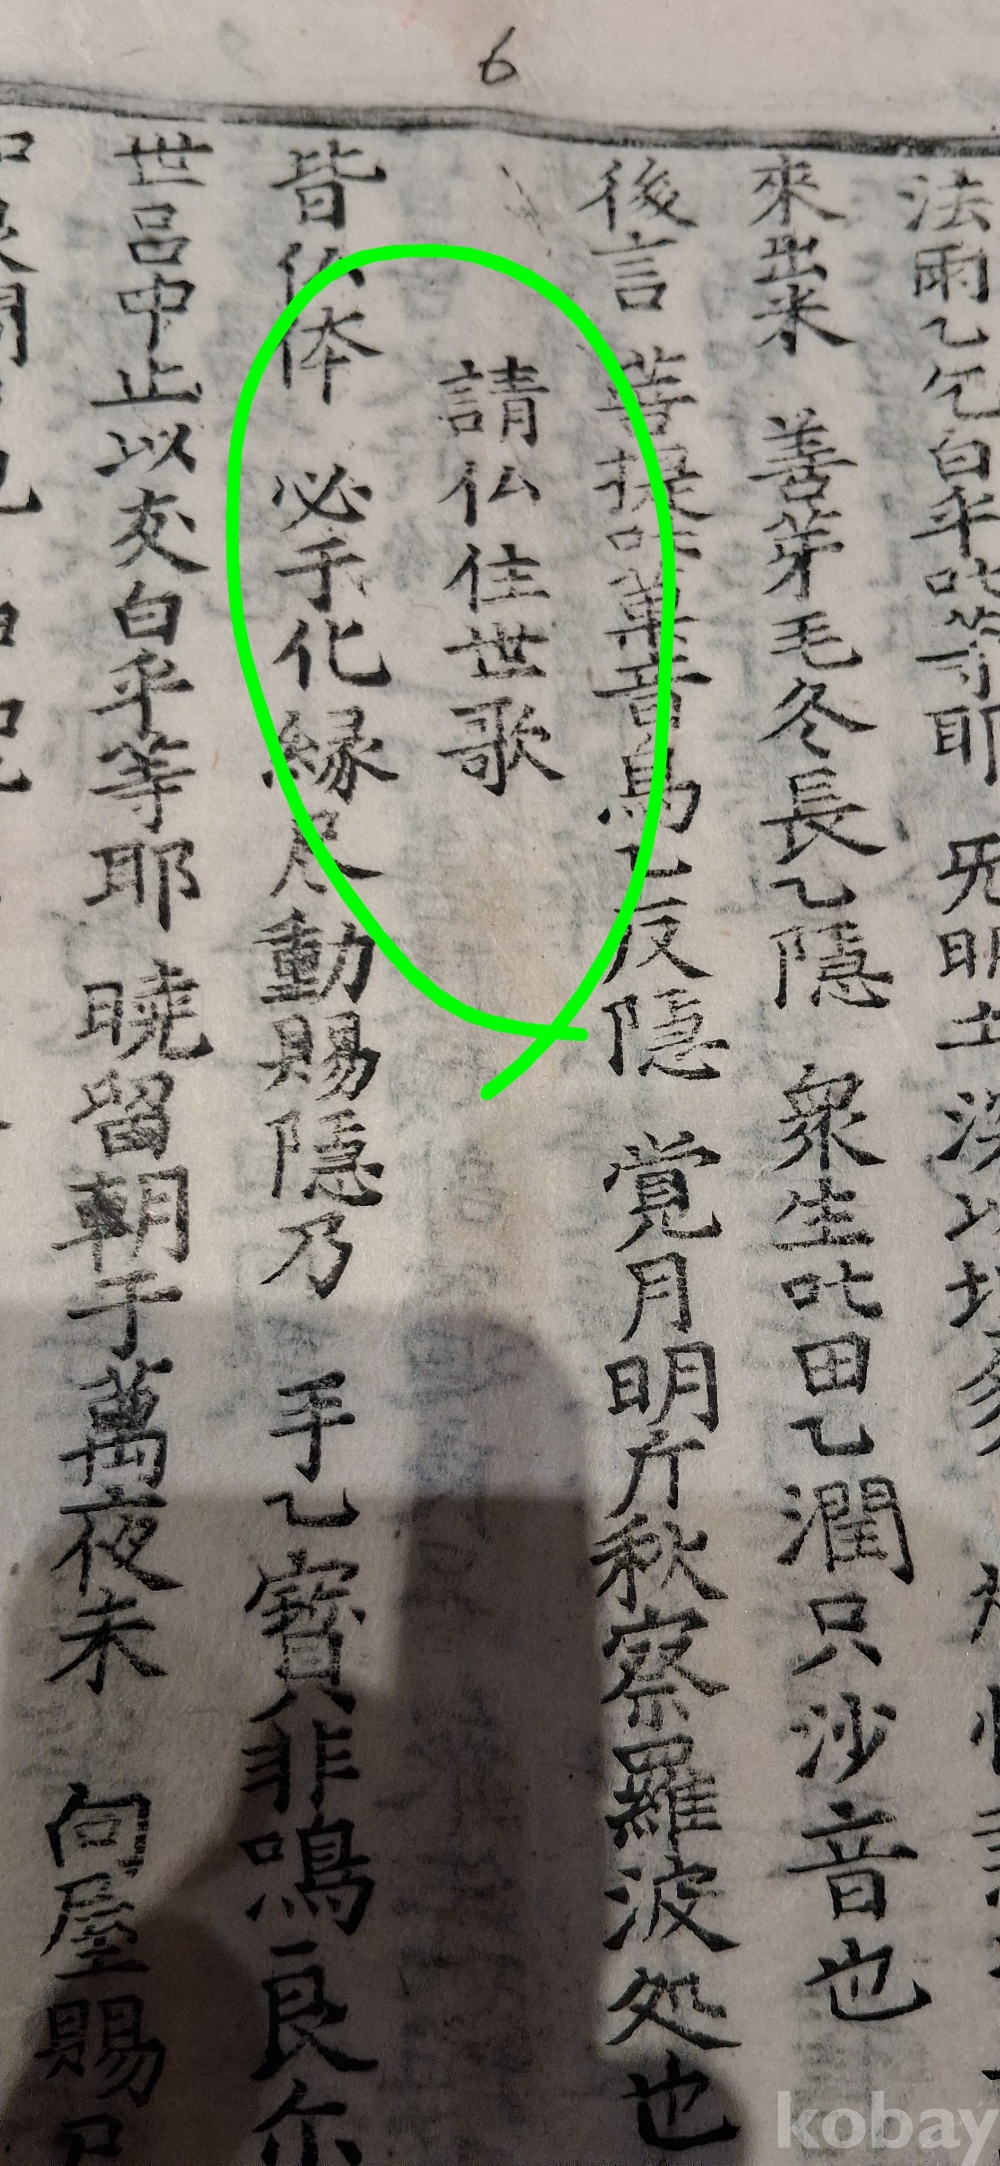 6
法雨乙乞白乎叱等耶 旡明土深以
來出米 善芽毛冬長乙隱 衆生叱田乙潤只沙音也
後言 菩提叱菓音烏乙反隱 覚月明斤秋察羅波処也
請仏住世歌
皆仏体 必于化縁尽動賜隱乃 手乙寶非鳴良尓
世呂中止以友白乎等耶 曉留朝于萬夜未 向屋賜尸
kobay